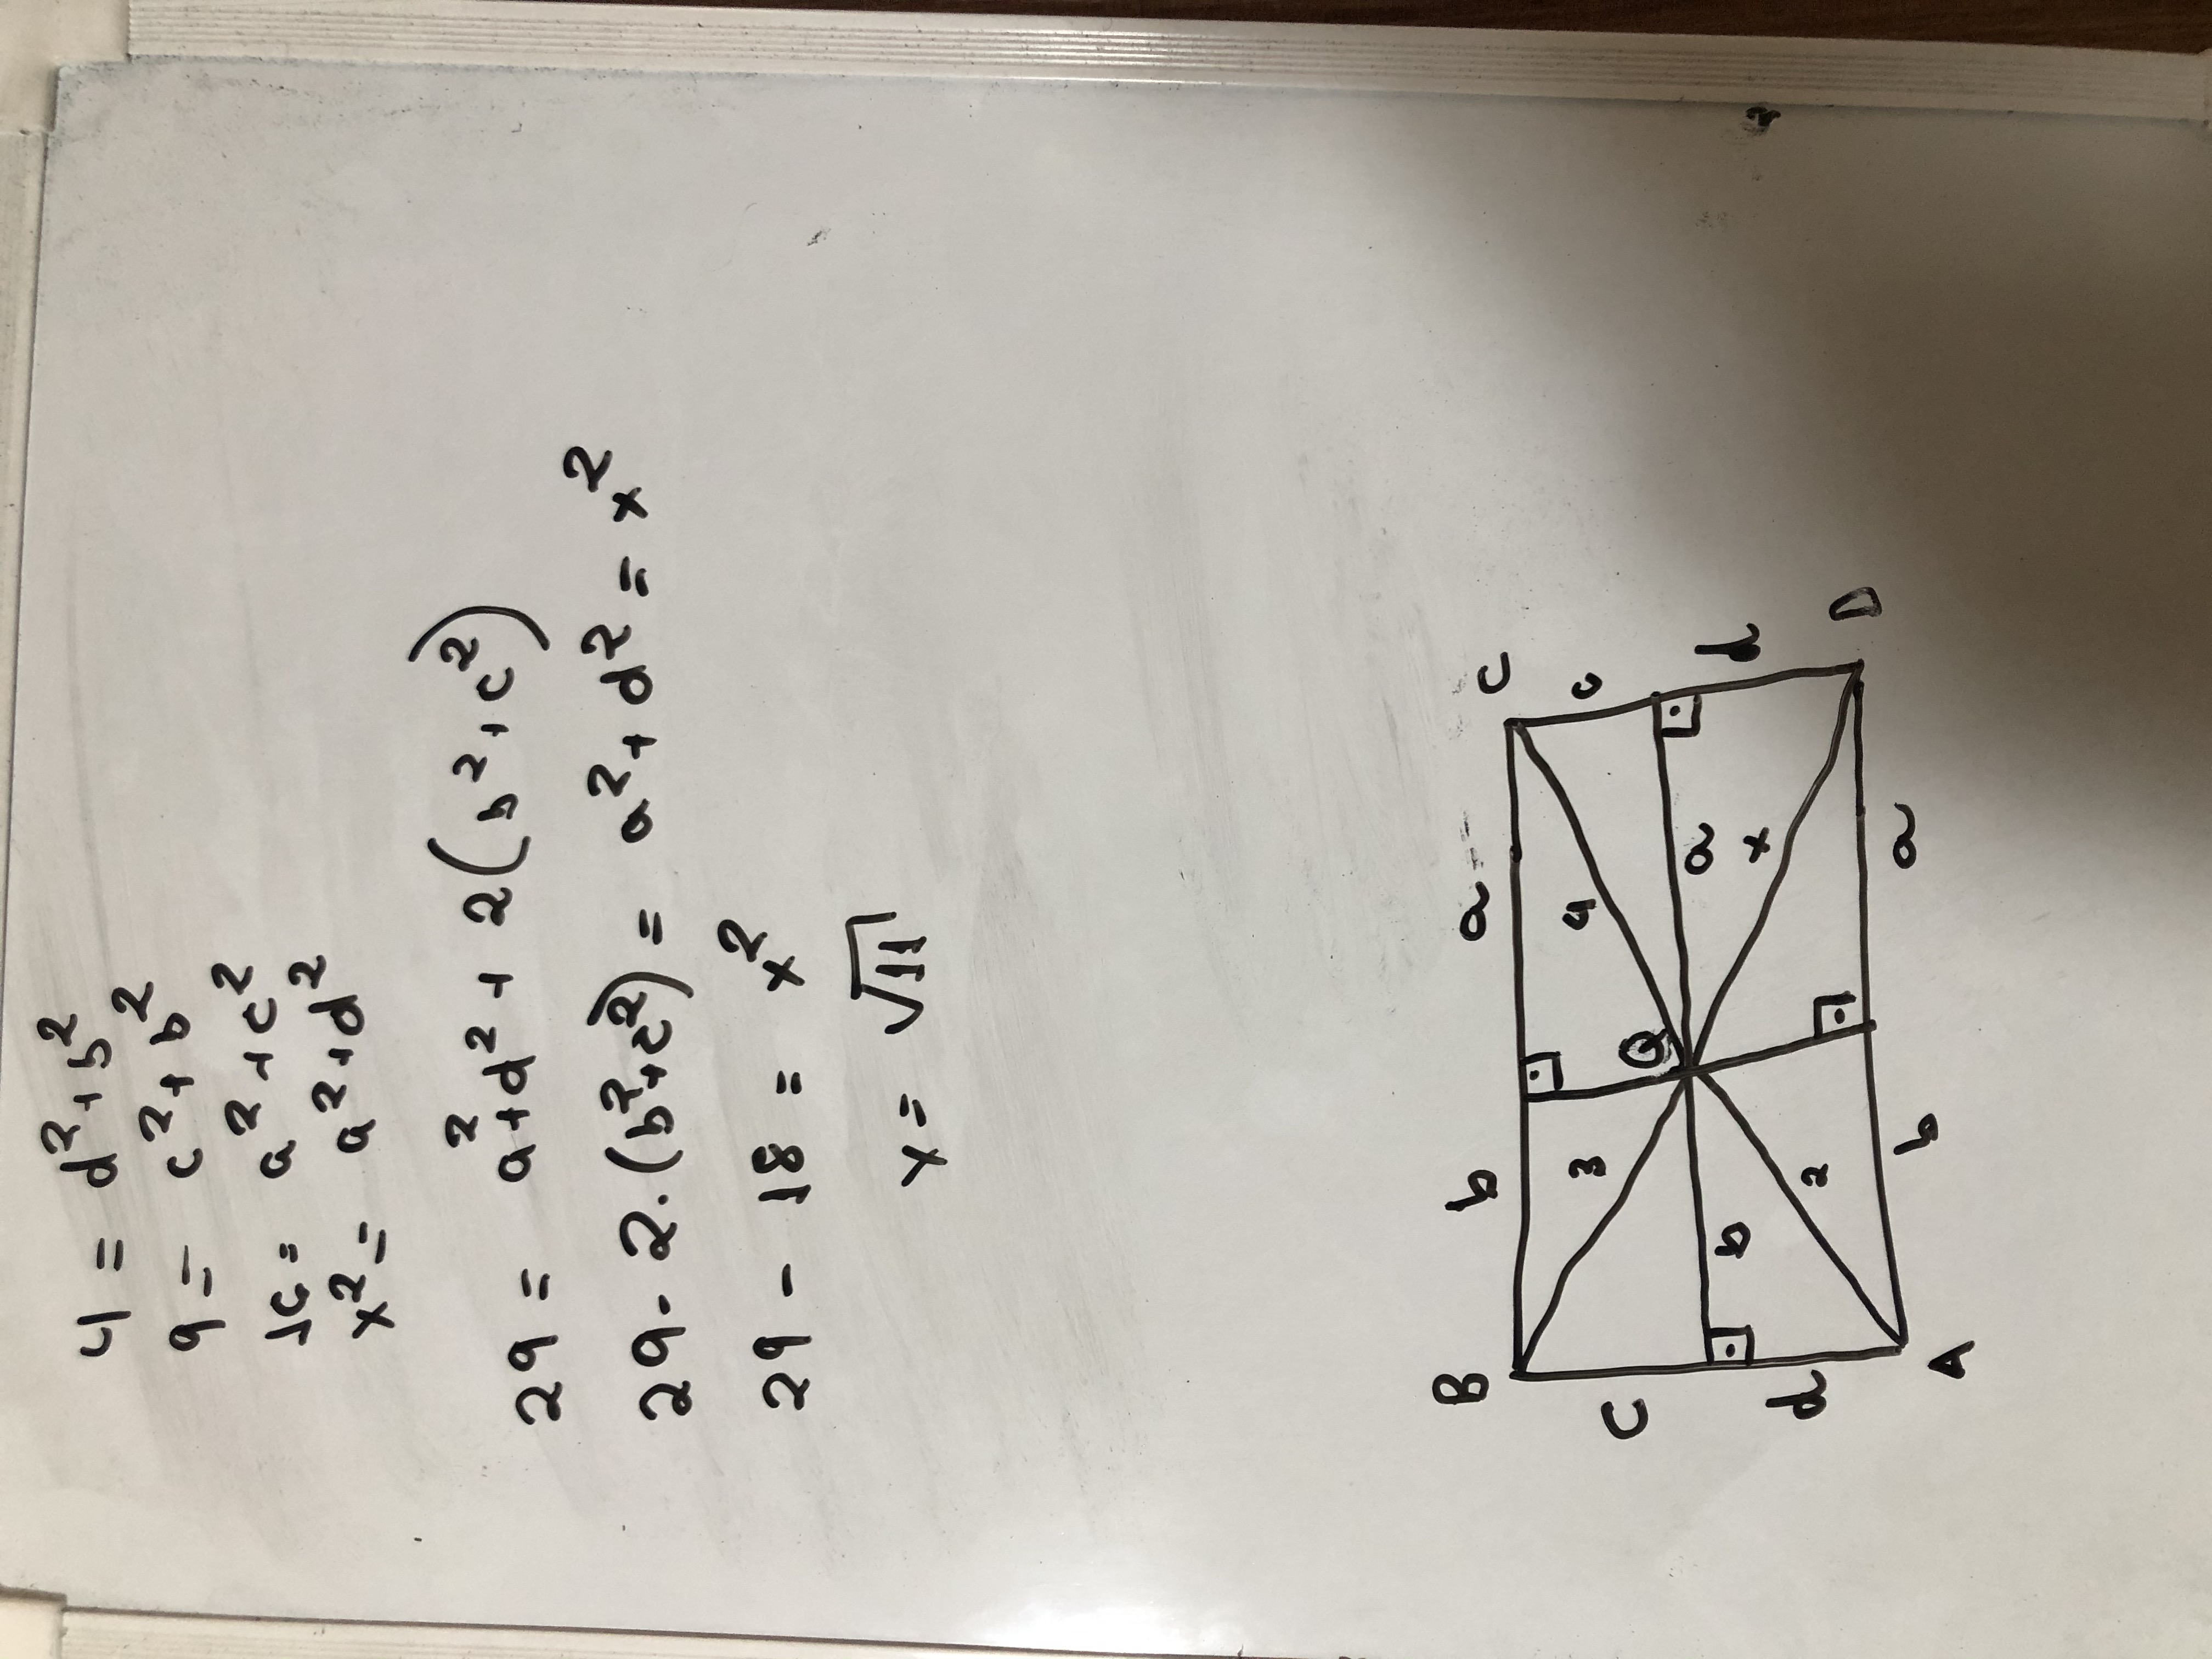 4 = d²+b²
9 = c²+b²
16 = a²+c²
x² = a²+d²
29 = a²+d²+2(b²+c²)
29-2.(b²+c²) = a²+d² = x²
29-18 = x²
x = √11
B b a C
c 3 4 c
Q
b a
d 2 x d
A b a D